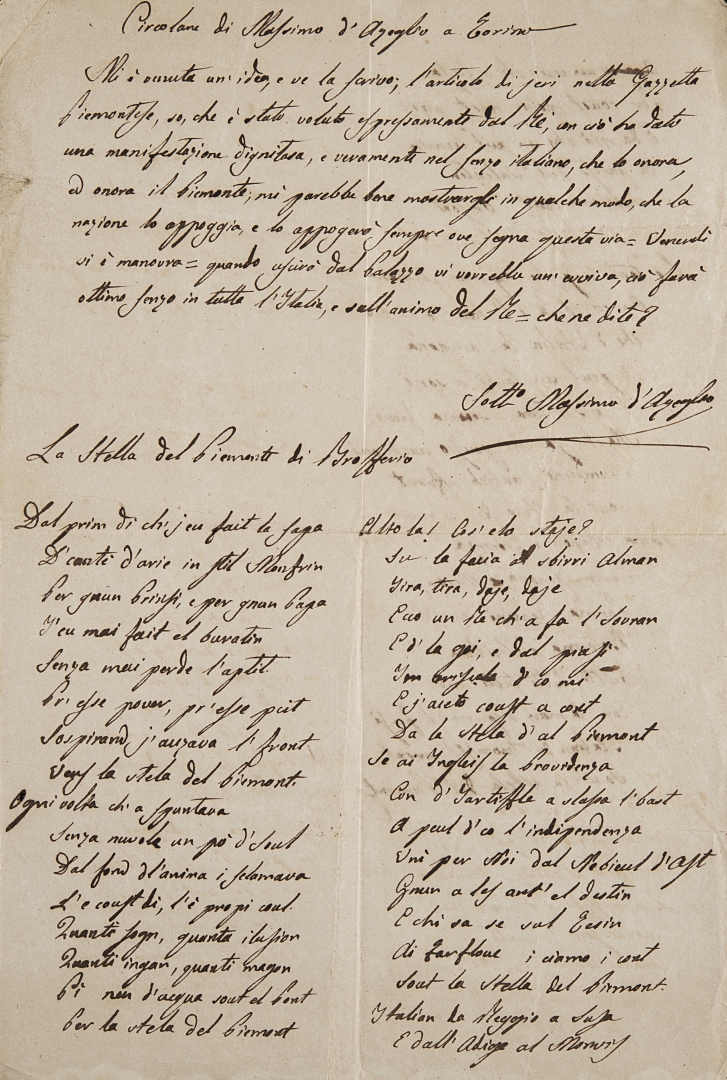 Circolare di Massimo d'Azeglio a Torino
Mi è venuta un' idea, e ve la scrivo; l'articolo di jeri nella Gazzetta
Piemontese, so, che è stato voluto espressamente dal Re, con ciò ha dato
una manifestazione dignitosa, e veramente nel senzo italiano, che lo onora,
ed onora il Piemonte; mi parebbe bene mostrargli in qualche modo, che la
nazione lo appoggia, e lo appogerà sempre ove segua questa via = Venerdì
vi è manovra = quando uscirà dal Palazzo vi vorrebbe un' evviva, ciò farà
ottimo senzo in tutta l'Italia, e sull'animo del Re = che ne dite?
Sotto Massimo d'Azeglio
La Stella del Piemont di Brofferio
Dal prim di ch'j eu fait la sapa
D'cantè d'arie in stil Monfrin
Per gnun Prinsi, e per gnun Papa
J'eu mai fait el buratin
Senza mai perde l'aptit
Pr' esse pover, pr' esse pcit
Sospirand j'auzava l' front
Vers la stela del Piemont.
Ogni volta ch' a spuntava
Senza nuvole un pò d' Soul
Dal fond dl'anima i sclamava
L'è coust dì, l'è propi coul.
Quanti sogn, quanta ilusion
Quanti ingan, quanti magon
Pì neu d'acqua sout el Pont
Per la stela del Piemont
Alto là! Cos' elo staje?
Su la facia al sbirri Alman
Tira, tira, daje, daje
Ecco un Re ch' a fa l' Sovran
E d' la goi, e dal piasì
I'm d' co mi
E j'aceto coust a cont
Da la Stela d'al Piemont
Se ai Ingleis la Providenza
Con d' Tartiffle a slassa l' bast
A peul d'co l'indipendenza
Unì per Noi dal Nebieul d'Ast
Gnun a les ant' el destin
E chi sa se sul Tesin
Ai i ciamo i cont
Sout la Stella del Piemont.
Italian da Reggio a Susa
E dall' Adige al Monvis